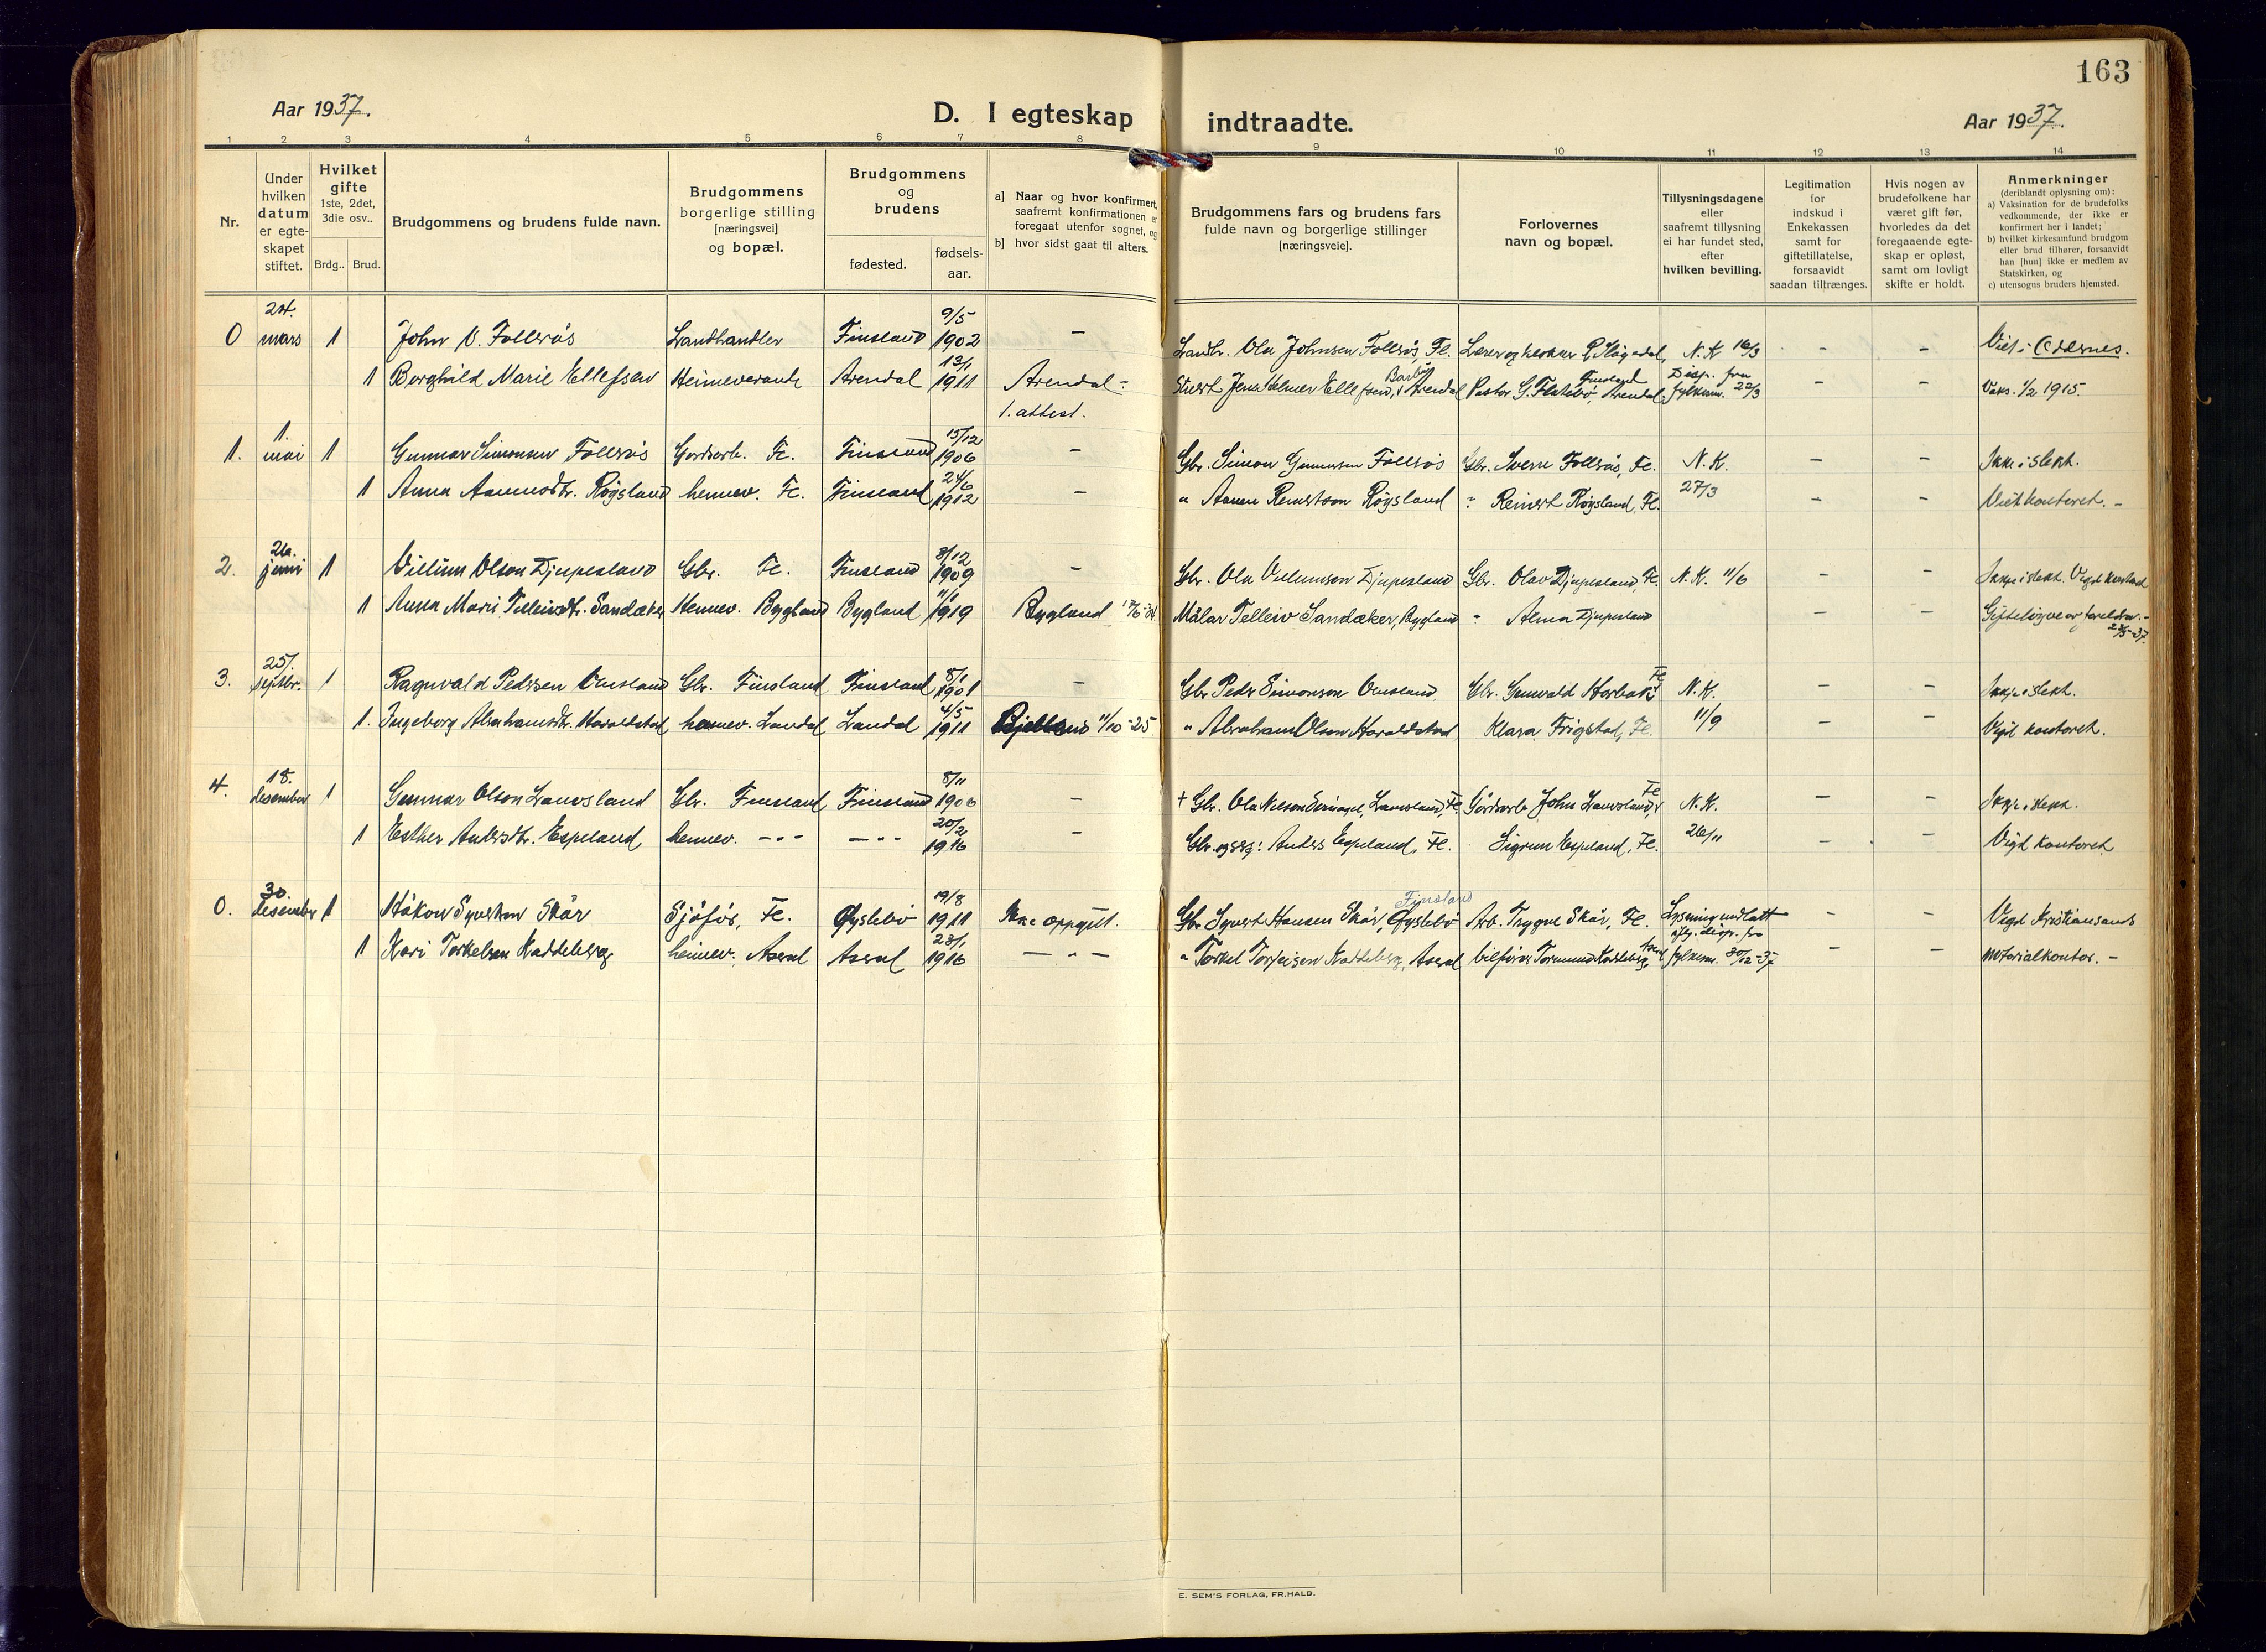 163
Aar 1937.
D. I egteskap indtraadte.
Aar 1937.
1 2 3 4 5 6 7 8 9 10 11 12 13 14
Nr.
Under hvilken datum er egte-skapet stiftet.
Hvilket gifte 1ste, 2det, 3die osv..
Brdg.. Brud.
Brudgommens og brudens fulde navn.
Brudgommens borgerlige stilling [næringsvei] og bopæl.
Brudgommens og brudens
fødested.
fødsels-aar.
a] Naar og hvor konfirmert, saafremt konfirmationen er foregaat utenfor sognet, og
b] hvor sidst gaat til alters.
Brudgommens fars og brudens fars fulde navn og borgerlige stillinger [næringsveie].
Forlovernes navn og bopæl.
Tillysningsdagene eller saafremt tillysning ei har fundet sted, efter hvilken bevilling.
Legitimation for indskud i Enkekassen samt for giftetillatelse, forsaavidt saadan tiltrænges.
Hvis nogen av brudefolkene har været gift før, hvorledes da det foregaaende egte-skap er opløst, samt om lovligt skifte er holdt.
Anmerkninger (deriblandt oplysning om):
a) Vaksination for de brudefolks vedkommende, der ikke er konfirmert her i landet;
b) hvilket kirkesamfund brudgom eller brud tilhører, forsaavidt han [hun] ikke er medlem av Statskirken, og
c) utensogns bruders hjemsted.
0 24. mars 1 John O. Follerås Landhandler Finsland 9/5 1902 - Landh. Ola Johnsen Follerås, Fe. Lærer og klokker Hågedal, Finsland N.K. 16/3 - - Viet i Oddernes.
1 Borghild Marie Ellefsen Heimeverande Arendal 13/1 1911 Arendal - 1. attest. Stuert Jens Helmer Ellefsen, Barbu, Arendal Pastor G. Flatebø, Arendal. Disp. fra fylkesm. 22/3 - - Vaks. 1/2 1915.
1. 1. mai 1 Gunnar Simonsen Follerås Gardsarb. Fe. Finsland 15/12 1906 - Gbr. Simon Gunnarson Follerås Gbr. Sverre Follerås, Fe. N.K. 27/3 - - Ikke i slekt.
1 Anna Aanensdtr. Røysland heimev. Fe. Finsland 24/6 1912 - " Aanen Reinertson Røysland " Reinert Røysland, Fe. - - Viet kontoret. -
2. 26. juni 1 Villum Olson Djupesland Gbr. Fe. Finsland 8/12 1909 - Gbr. Ola Villumson Djupesland Gbr. Olav Djupesland, Fe. N.K. 11/6 - - Ikkje i slekt. Vigd kontoret
1 Anna Mari Telleivdtr. Sandåker Heimev. Bygland Bygland 11/1 1919 Bygland Målar Telleiv Sandåker, Bygland " Alma Djupesland - - Gifteløyve av foreldra. - 37.
3. 25. septbr. 1 Ragnvald Pedersen Ousland Gbr. Finsland Finsland 8/1 1901 - Gbr. Peder Simonson Ousland Gbr. Gunvald Horbakk Fe. N.K. 11/9 - - Ikkje i slekt.
1. Ingeborg Abrahamsdtr. Haraldstad heimev. Laudal Laudal 4/5 1911 Bjelland 11/10 - 25 " Abraham Olson Haraldstad Klara Frigstad, Fe. - - Vigd kontoret.
4. 18. desember 1 Gunnar Olson Lauvsland Gbr. Finsland Finsland 8/11 1906 - + Gbr. Ola Nilson Lauvsland, Fe. Gårdsarb. John Lauvsland, Fe N.K. 26/11 - - Ikkje i slekt.
1 Esther Andersdtr. Espeland heimev. - " - - " - 20/2 1916 - Gbr. og Anders Espeland, Fe. Sigrun Espeland, Fe. - - Vigd kontoret
0. 30. desember 1 Håkon Syvertson Skår Sjåfør, Fe. Øyslebø 19/8 1911 Ikke oppgitt. Gbr. Syvert Hansen Skår, Øyslebø Finsland Arb. Trygve Skår, Fe. Lysning undlatt - - Vigd Kristiansands
1 Kari Torkelsen Kaddeberg heimev. Åseral Åseral 23/1 1916 - " - " Torkel Torjeisen Kaddeberg, Åseral bilfører Tormund Kaddeberg, Åseral disp. fra fylkesm. 30/12-37 - - notorialkontor. -
E. SEM'S FORLAG, FR.HALD.